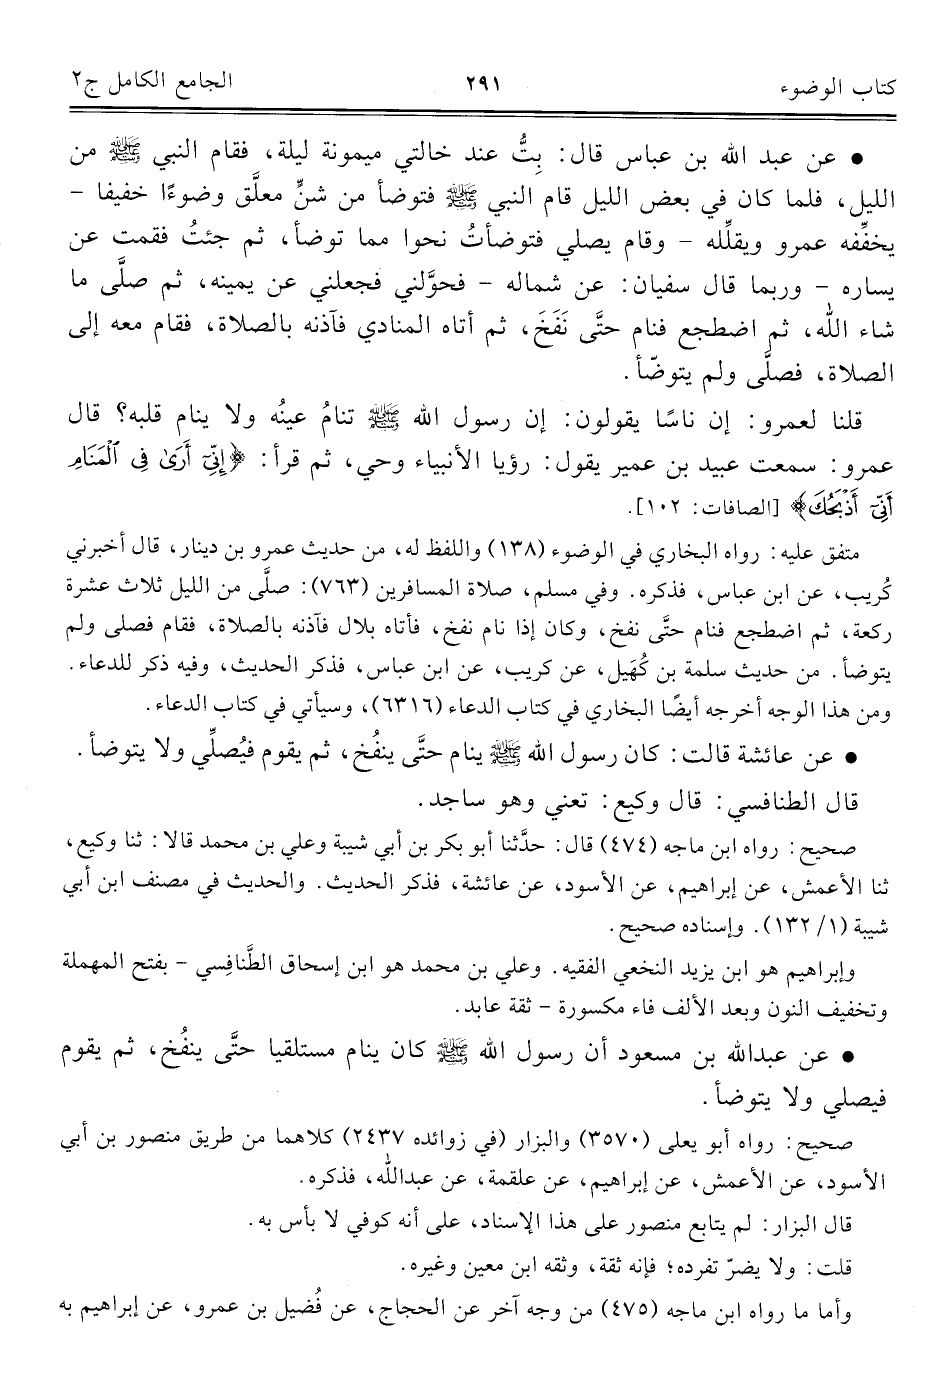 كتاب الوضوء ٢٩١ الجامع الكامل ج٢
• عن عبد الله بن عباس قال: بِتُّ عند خالتي ميمونة ليلة، فقام النبي ﷺ من
الليل، فلما كان في بعض الليل قام النبي ﷺ فتوضأ من شنٍّ معلَّق وضوءًا خفيفا -
يخفِّفه عمرو ويقلِّله - وقام يصلي فتوضأتُ نحوا مما توضأ، ثم جئتُ فقمت عن
يساره - وربما قال سفيان: عن شماله - فحوَّلني فجعلني عن يمينه، ثم صلَّى ما
شاء الله، ثم اضطجع فنام حتَّى نَفَخَ، ثم أتاه المنادي فآذنه بالصلاة، فقام معه إلى
الصلاة، فصلَّى ولم يتوضّأ.
قلنا لعمرو: إن ناسًا يقولون: إن رسول الله ﷺ تنامُ عينُه ولا ينام قلبه؟ قال
عمرو: سمعت عبيد بن عمير يقول: رؤيا الأنبياء وحي، ثم قرأ: ﴿إِنِّيٓ أَرَىٰ فِي ٱلْمَنَامِ
أَنِّيٓ أَذْبَحُكَ﴾ [الصافات: ١٠٢].
متفق عليه: رواه البخاري في الوضوء (١٣٨) واللفظ له، من حديث عمرو بن دينار، قال أخبرني
كُريب، عن ابن عباس، فذكره. وفي مسلم، صلاة المسافرين (٧٦٣): صلَّى من الليل ثلاث عشرة
ركعة، ثم اضطجع فنام حتَّى نفخ، وكان إذا نام نفخ، فأتاه بلال فآذنه بالصلاة، فقام فصلى ولم
يتوضأ. من حديث سلمة بن كُهَيل، عن كريب، عن ابن عباس، فذكر الحديث، وفيه ذكر للدعاء.
ومن هذا الوجه أخرجه أيضًا البخاري في كتاب الدعاء (٦٣١٦)، وسيأتي في كتاب الدعاء.
• عن عائشة قالت: كان رسول الله ﷺ ينام حتَّى ينفُخ، ثم يقوم فيُصلِّي ولا يتوضأ.
قال الطنافسي: قال وكيع: تعني وهو ساجد.
صحيح: رواه ابن ماجه (٤٧٤) قال: حدَّثنا أبو بكر بن أبي شيبة وعلي بن محمد قالا: ثنا وكيع،
ثنا الأعمش، عن إبراهيم، عن الأسود، عن عائشة، فذكر الحديث. والحديث في مصنف ابن أبي
شيبة (١/ ١٣٢). وإسناده صحيح.
وإبراهيم هو ابن يزيد النخعي الفقيه. وعلي بن محمد هو ابن إسحاق الطَّنافِسي - بفتح المهملة
وتخفيف النون وبعد الألف فاء مكسورة - ثقة عابد.
• عن عبدالله بن مسعود أن رسول الله ﷺ كان ينام مستلقيا حتَّى ينفُخ، ثم يقوم
فيصلي ولا يتوضأ.
صحيح: رواه أبو يعلى (٣٥٧٠) والبزار (في زوائده ٢٤٣٧) كلاهما من طريق منصور بن أبي
الأسود، عن الأعمش، عن إبراهيم، عن علقمة، عن عبدالله، فذكره.
قال البزار: لم يتابع منصور على هذا الإسناد، على أنه كوفي لا بأس به.
قلت: ولا يضرّ تفرده؛ فإنه ثقة، وثقه ابن معين وغيره.
وأما ما رواه ابن ماجه (٤٧٥) من وجه آخر عن الحجاج، عن فُضيل بن عمرو، عن إبراهيم به